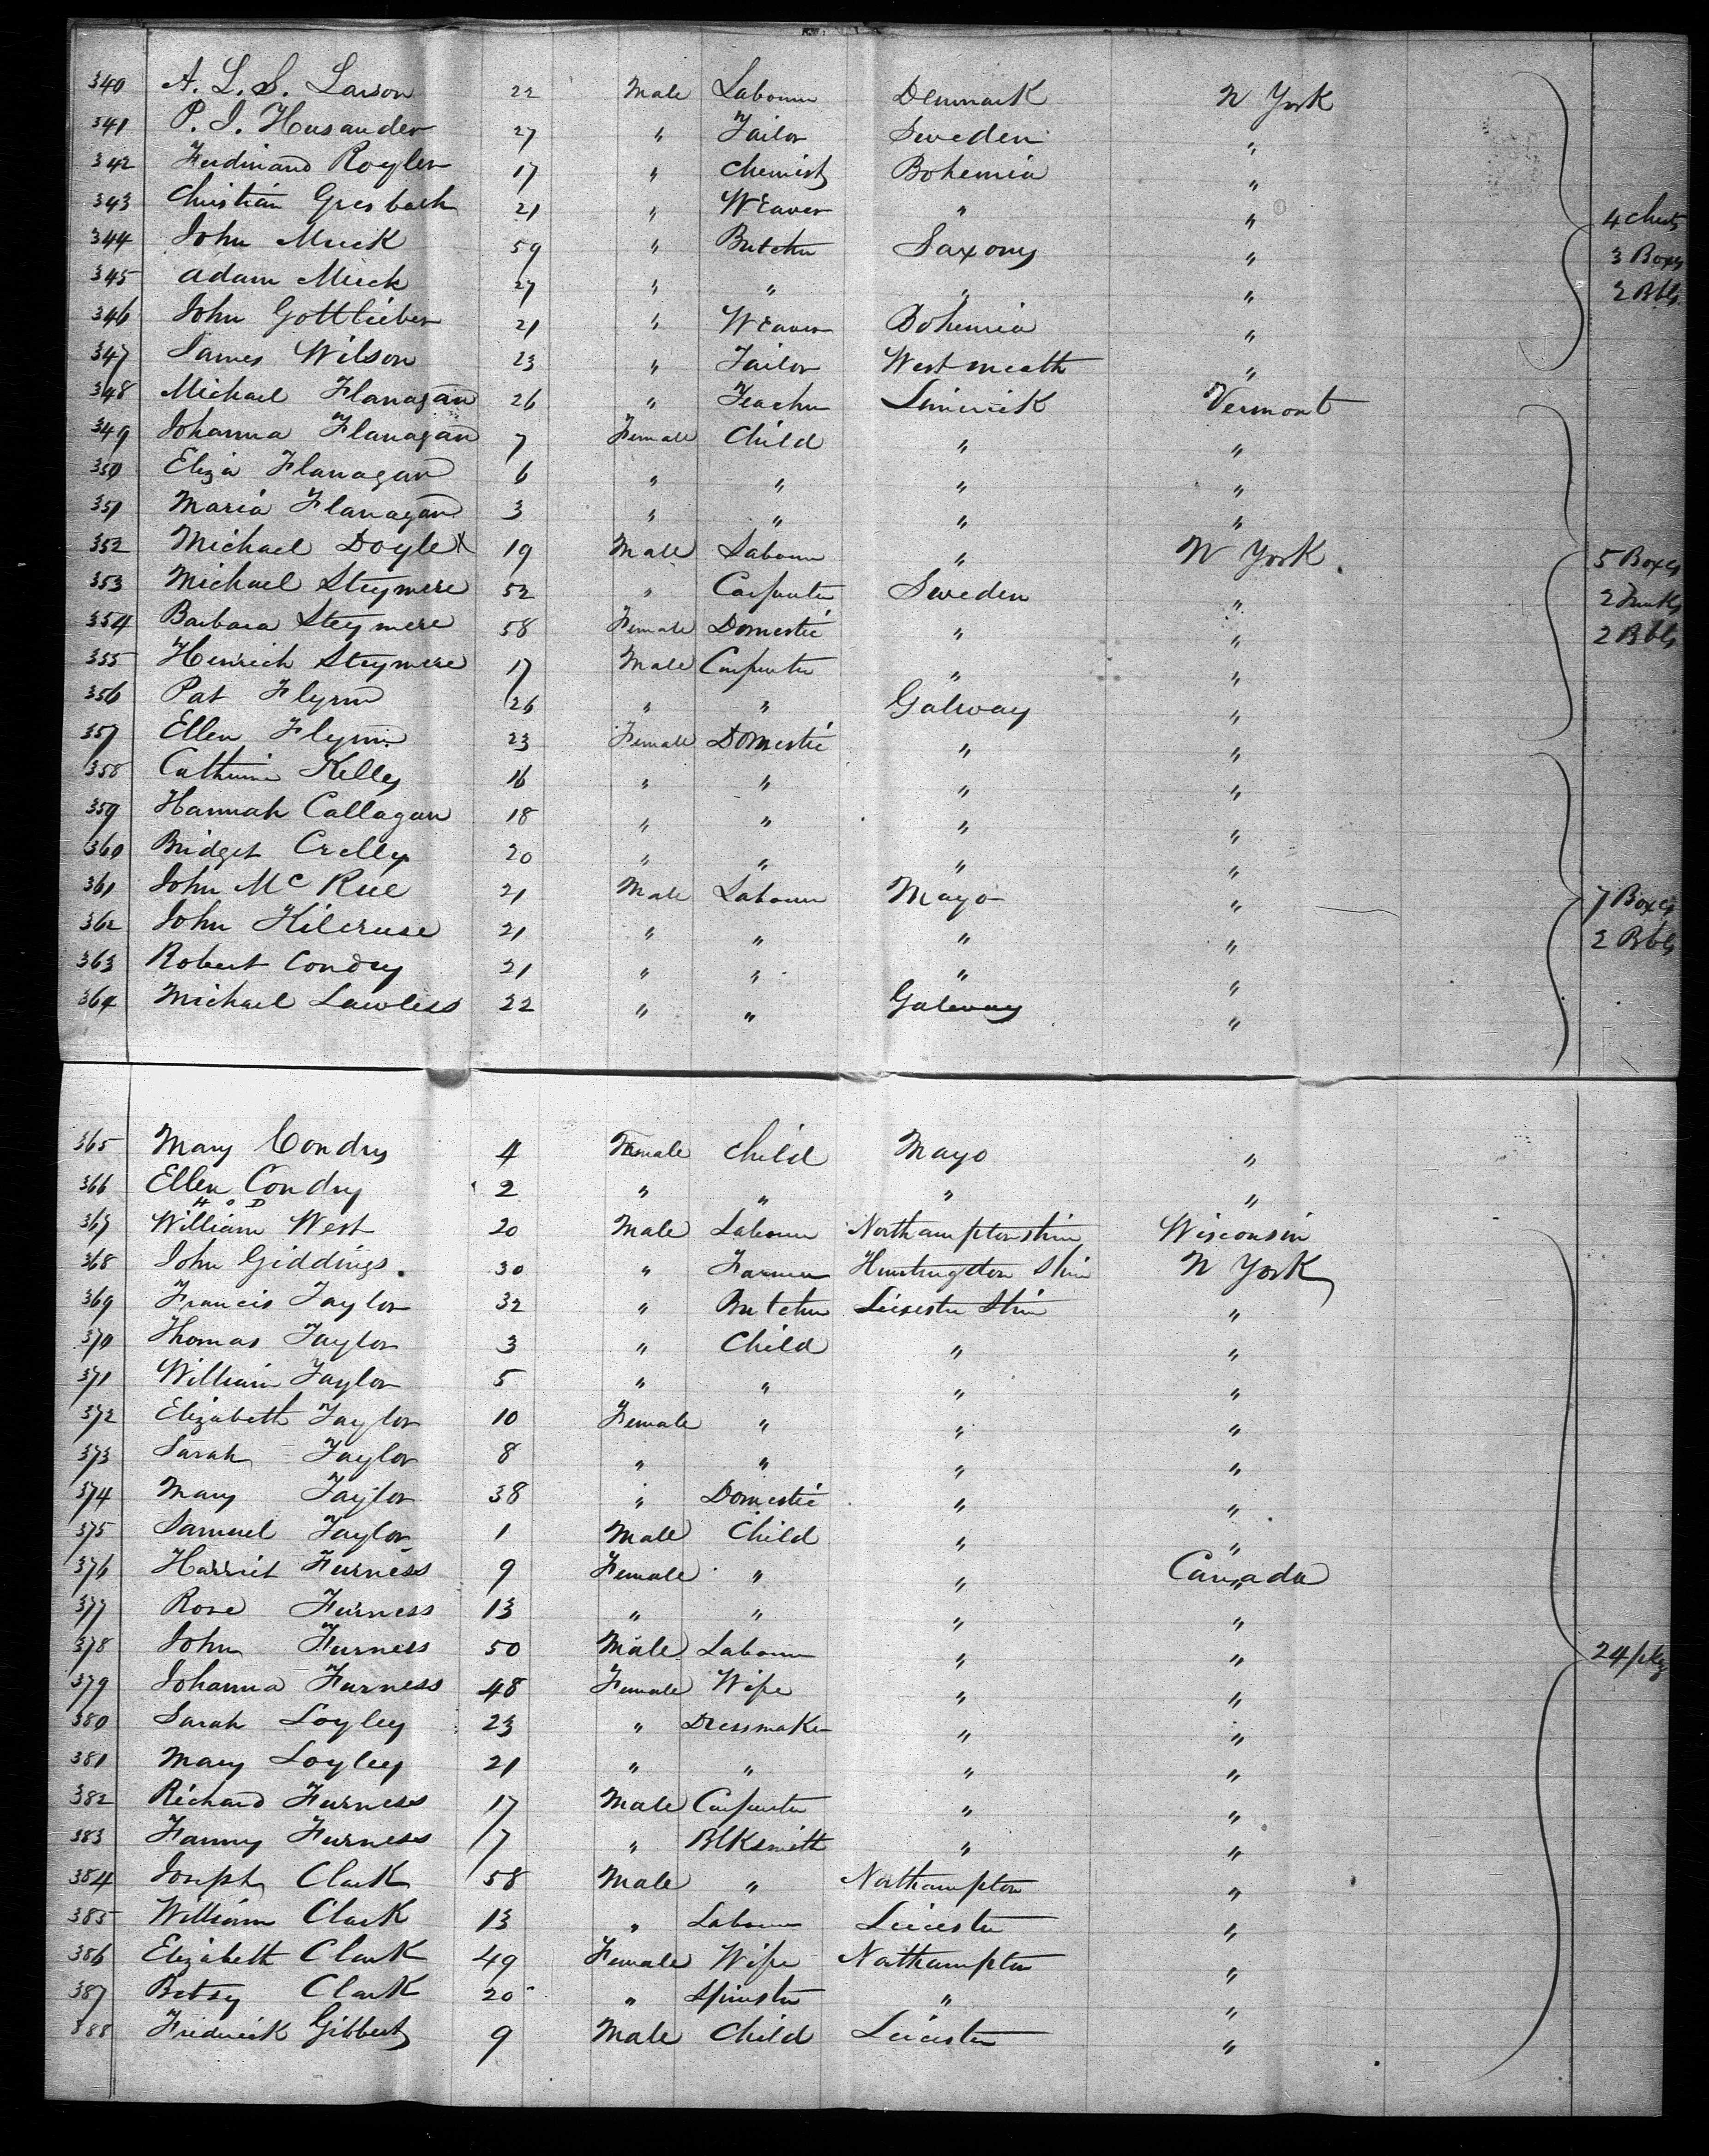 340 A. L. S. Larson 22 Male Labourer Denmark N York
341 P. I. Husander 27 " Tailor Sweden "
342 Ferdinand Rogler 17 " Chemist Bohemia "
343 Christian Gresbach 21 " Weaver " " 4 Chests
344 John Muck 59 " Butcher Saxony " 3 Boxes
345 Adam Muck 27 " " " " 2 Bbls
346 John Gottlieber 21 " Weaver Bohemia "
347 James Wilson 23 " Tailor Westmeath "
348 Michael Flanagan 26 " Teacher Limerick Vermont
349 Johanna Flanagan 7 Female Child " "
350 Eliza Flanagan 6 " " " "
351 Maria Flanagan 3 " " " "
352 Michael Doyle X 19 Male Labourer " N York. 5 Boxes
353 Michael Steymere 52 " Carpenter Sweden " 2 Trunks
354 Barbara Steymere 58 Female Domestic " " 2 Bbls
355 Henrich Steymere 17 Male Carpenter " "
356 Pat Flynn 26 " " Galway "
357 Ellen Flynn 23 Female Domestic " "
358 Catherine Kelly 16 " " " "
359 Hannah Callagan 18 " " " "
360 Bridget Crelly 20 " " " "
361 John McRue 21 Male Labourer Mayo " 7 Boxes
362 John Kilcruse 21 " " " " 2 Bbls
363 Robert Condry 21 " " " "
364 Michael Lawless 22 " " Galway "
365 Mary Condry 4 Female Child Mayo "
366 Ellen Condry 2 " " " "
367 William West 20 Male Labourer Northamptonshire Wisconsin
368 John Giddings. 30 " Farmer Huntingdon Shire N York
369 Francis Taylor 32 " Butcher Leicester Shire "
370 Thomas Taylor 3 " Child " "
371 William Taylor 5 " " " "
372 Elizabeth Taylor 10 Female " " "
373 Sarah Taylor 8 " " " "
374 Mary Taylor 38 " Domestic " "
375 Samuel Taylor 1 Male Child " "
376 Harriet Furness 9 Female " " Canada
377 Rose Furness 13 " " " "
378 John Furness 50 Male Labourer " " 24 pkg
379 Johanna Furness 48 Female Wife " "
380 Sarah Loyley 23 " Dressmaker " "
381 Mary Loyley 21 " " " "
382 Richard Furness 17 Male Carpenter " "
383 Fanny Furness 7 " Blksmith " "
384 Joseph Clark 58 Male " Northampton "
385 William Clark 13 " Labourer Leicester "
386 Elizabeth Clark 49 Female Wife Northampton "
387 Betsy Clark 20 " Spinster " "
388 Frederick Gibbert 9 Male Child Leicester "